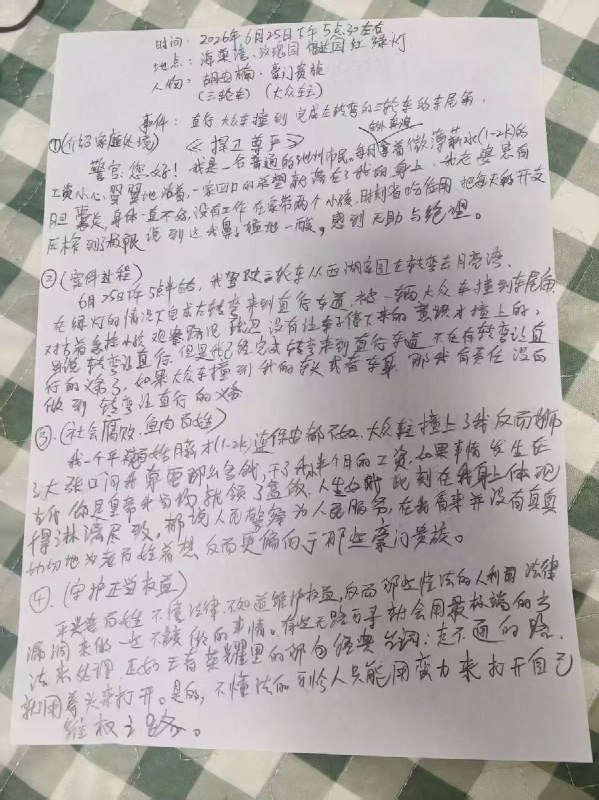 时间：2026年6月25日下午5点30左右
地点：海棠湾、玫瑰园 红绿灯
人物：胡安楠、豪门贵族
（三轮车）（大众车）
事件：直行大众车撞到完成左转弯的三轮车的车尾角
①（介绍家庭处境）《捍卫尊严》
警官您好！我是一名普通的池州市民。每月拿着微薄薪水（1-2k）的
工资小心翼翼地活着，一家四口的希望都落在了我的身上，我老婆患有
胆囊炎，身体一直不好，没有工作在家带两个小孩，时刻省吃俭用把每天的开支
压榨到了极限，说到这我鼻子 一酸，感到无助与绝望。
②（案件过程）
6月25日下午5点半左右，我驾驶三轮车从西湖家园左转弯去月亮湾，
在绿灯的情况下完成左转弯来到直行车道，被一辆大众车撞到车尾角
对方着急接小孩观察路况 没有让车子停下来的意识才撞上的，
虽说转弯让直行，但是我已经完成转弯来到直行车道，不在有转弯让直
行的义务了，如果大众车撞到我的车头或者车身，那我有责任没有
做到转弯让直行的义务
③.（社会腐败、鱼肉百姓）
我一个平 百姓月薪才（1-2k）连保安都不如，大众车撞上了我反而狮
子大张口问我索要那么多钱，干了我半个月的工资，如果事情发生在
古代你是皇帝我当狗 就领了盒饭，人生如戏此刻在我身上体现
得了淋漓尽致，都说人民警察为人民服务，在我看来并没有真真
切切地为老百姓着想反而更偏向于那些豪门贵族。
④.（守护正当权益）
平头老百姓不懂法律不知道维护权益，反而那些懂法的人利用法律
漏洞来做一些不该做的事情。有些无路可寻就会用最极端的方
法来处理，正如王者荣耀里的那句经典台词：走不通的路，
就用拳头来打开。是的，不懂法的可怜人只能用蛮力来打开自己
维权之路。